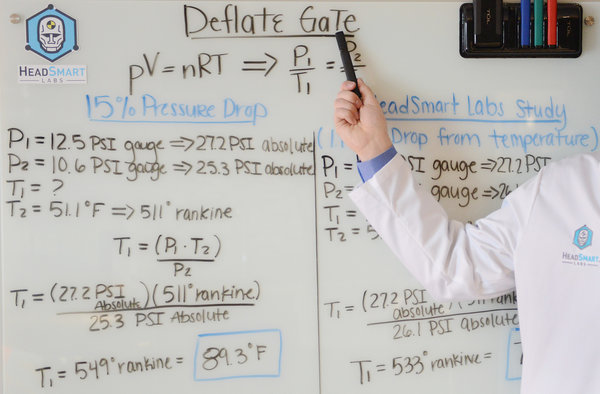 Deflate Gate
HEADSMART
LABS
pV = nRT ⇒ P₁/T₁ = P₂
15% Pressure Drop
P₁ = 12.5 PSI gauge ⇒ 27.2 PSI absolute
P₂ = 10.6 PSI gauge ⇒ 25.3 PSI absolute
T₁ = ?
T₂ = 51.1°F ⇒ 511° rankine
T₁ = (P₁ · T₂)
P₂
T₁ = (27.2 PSI Absolute)(511° rankine)
25.3 PSI Absolute
T₁ = 549° rankine = 89.3°F
HeadSmart Labs Study
Drop from temperature)
P₁ = PSI gauge ⇒ 27.2 PSI
P₂ = gauge ⇒
T₁ =
T₂ =
T₁ = (27.2 PSI absolute)
26.1 PSI absolute
T₁ = 533° rankine =
HEADSMART
LABS